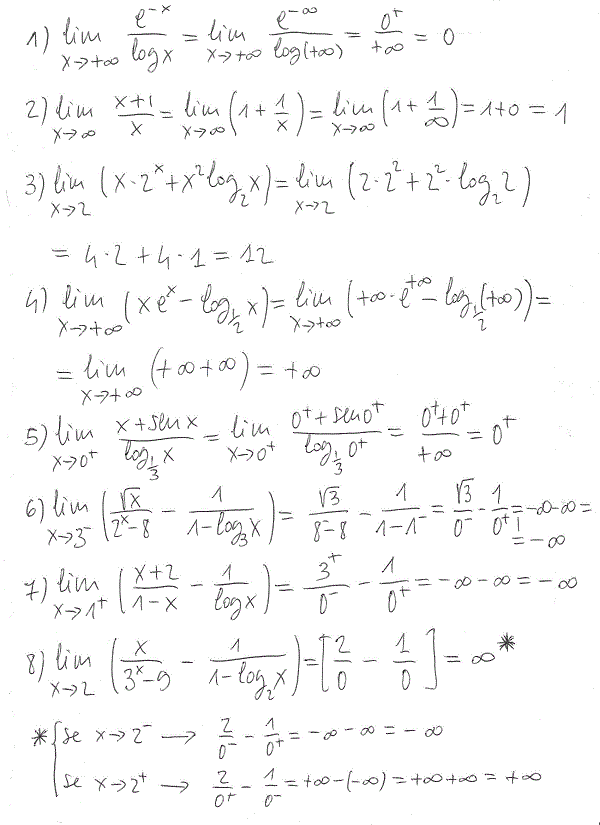 1) lim_{x→+∞} e^{-x}/log x = lim_{x→+∞} e^{-∞}/log(+∞) = 0⁺/+∞ = 0
2) lim_{x→∞} (x+1)/x = lim_{x→∞} (1 + 1/x) = lim_{x→∞} (1 + 1/∞) = 1+0 = 1
3) lim_{x→2} (x·2^x + x² log₂ x) = lim_{x→2} (2·2² + 2²·log₂ 2)
= 4·2 + 4·1 = 12
4) lim_{x→+∞} (x e^x − log_{1/2} x) = lim_{x→+∞} (+∞·e^{+∞} − log_{1/2}(+∞)) =
= lim_{x→+∞} (+∞+∞) = +∞
5) lim_{x→0⁺} (x + sen x)/(log_{1/3} x) = lim_{x→0⁺} (0⁺ + sen 0⁺)/(log_{1/3} 0⁺) = (0⁺+0⁺)/+∞ = 0⁺
6) lim_{x→3⁻} (√x/(2^x−8) − 1/(1−log₃ x)) = √3/(8⁻−8) − 1/(1−1⁻) = √3/0⁻ − 1/0⁺ = −∞−∞ =
= −∞
7) lim_{x→1⁺} ((x+2)/(1−x) − 1/log x) = 3⁺/0⁻ − 1/0⁺ = −∞ − ∞ = −∞
8) lim_{x→2} (x/(3^x−9) − 1/(1−log₂ x)) = [2/0 − 1/0] = ∞ *
* { se x→2⁻ → 2/0⁻ − 1/0⁺ = −∞ − ∞ = −∞
se x→2⁺ → 2/0⁺ − 1/0⁻ = +∞ − (−∞) = +∞+∞ = +∞